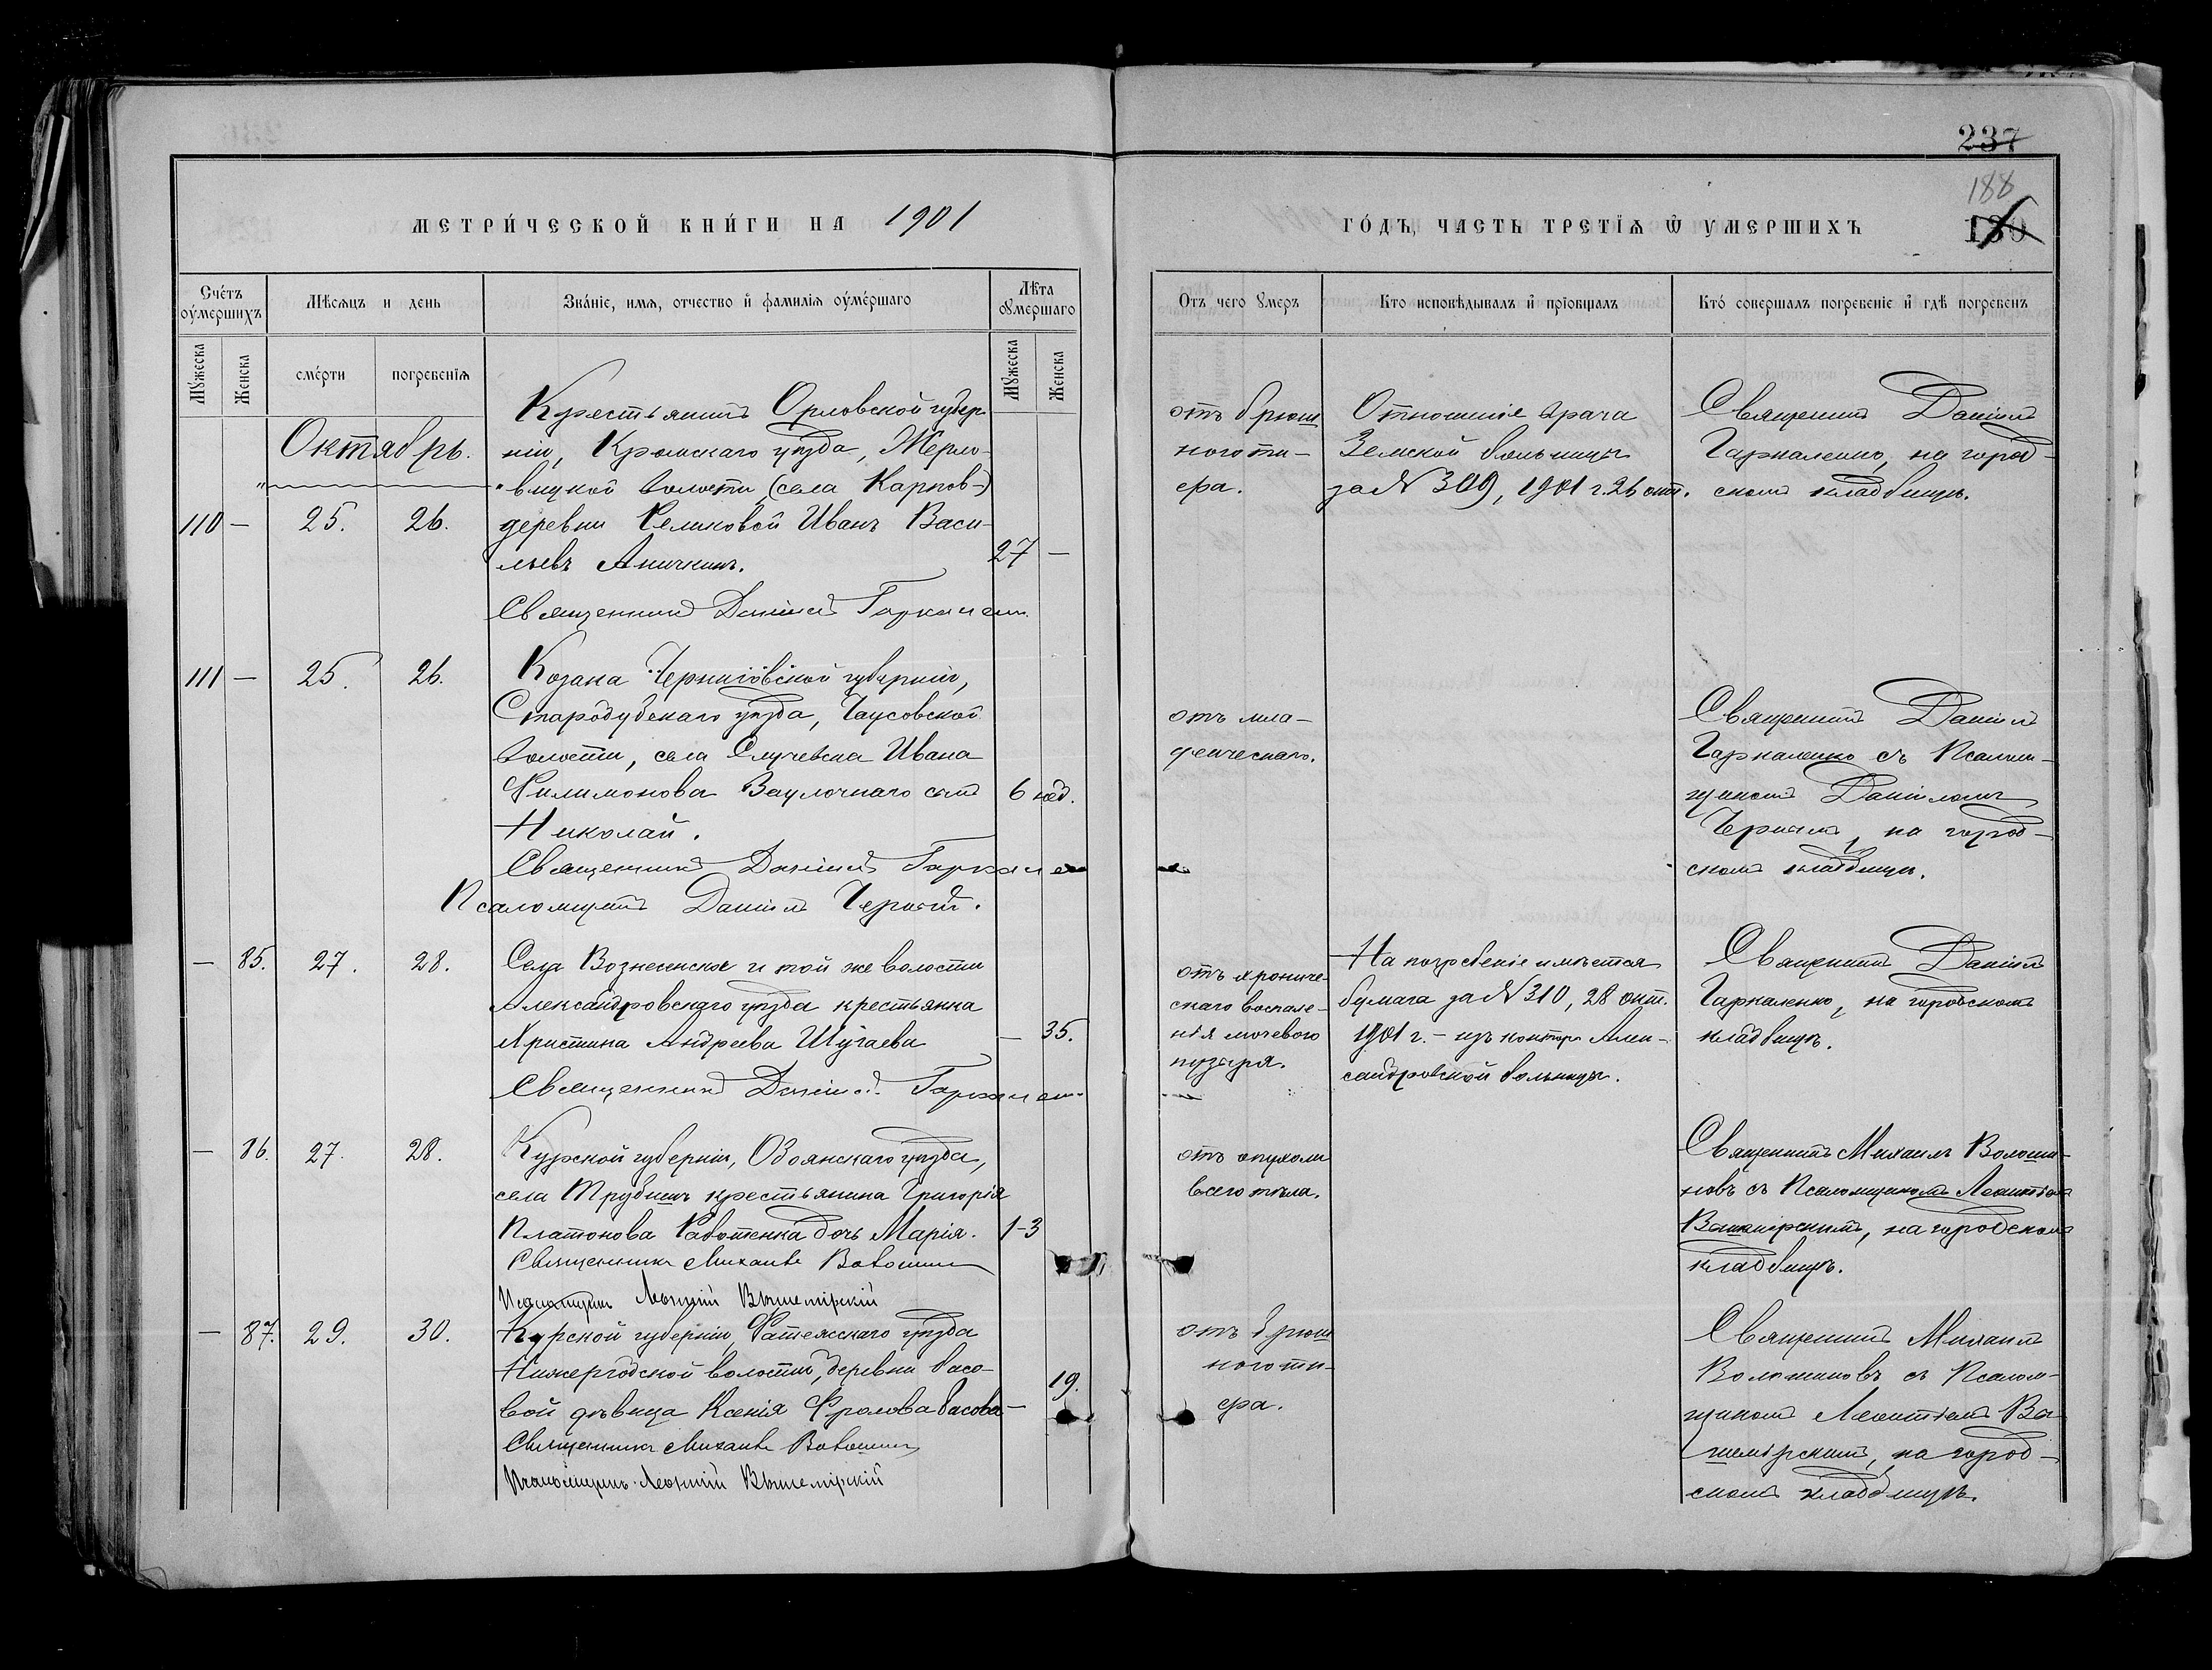 237
188
180
МЕТРИ́ЧЕСКОЙ КНИ́ГИ НА 1901
ГО́ДЪ, ЧАСТЬ ТРЕТІѦ Ѿ УМЕРШИХЪ
Сче́тъ оу́мершихъ
Мѣсѧцъ и день
Зва́ніе, имѧ, отчество и҆ фамиліѧ оу́ме́ршаго
Лѣта оумершаго
Отъ чего умеръ
Кто исповѣдывалъ и҆ прїобщалъ
Кто́ совершалъ погребеніе и҆ гдѣ погребенъ
Мужеска
Женска
сме́рти
погребенїѧ
Мужеска
Женска
Октябрь.
110 — 25. 26.
Крестьянинъ Орловской губер
ніи, Кромскаго уѣзда, Жерно-
вецкой волости, (села Карпов-)
деревни Селиховой Иванъ Васи-
льевъ Аничкинъ.
27 —
Священникъ Даніилъ Гаркаленко
отъ брюш
ного ти-
фа.
Отношеніе врача
Земской больницы
за № 309, 1901 г. 26 окт.
Священникъ Даніилъ
Гаркаленко, на город-
скомъ кладбищѣ.
111 — 25. 26.
Козака Черниговской губерніи,
Стародубскаго уѣзда, Чаусовской
волости, села Случевска Ивана
Филимонова Ваулочнаго сынъ
Николай.
6 нед.
Священникъ Даніилъ Гаркале
Псаломщикъ Даніилъ Черный.
отъ мла-
денческаго.
Священникъ Даніилъ
Гаркаленко съ Псалом-
щикомъ Даніиломъ
Чернымъ, на город-
скомъ кладбищѣ.
— 85. 27. 28.
Села Вознесенска и той же волости
Александровскаго уѣзда крестьянка
Христина Андреева Шугаева
— 35.
Священникъ Даніилъ Гаркален
отъ хрониче-
скаго воспале-
нія мочевого
пузыря.
На погребеніе имѣется
бумага за № 310, 28 окт.
1901 г. - изъ конторы Алек-
сандровской больницы.
Священникъ Даніилъ
Гаркаленко, на городскомъ
кладбищѣ.
— 86. 27. 28.
Курской губерніи, Обоянскаго уѣзда,
села Трубецъ крестьянина Григорія
Платонова дочь Марія.
1-3
Священникъ Михаилъ Волошин
Псаломщикъ Леонтій Вышемірскій
отъ опухоли
всего тѣла.
Священникъ Михаилъ Волоши-
новъ съ Псаломщикомъ Леонтіемъ
Вышемірскимъ, на городскомъ
кладбищѣ.
— 87. 29. 30.
Курской губерніи, Фатежскаго уѣзда
Нижегродской волости, деревни Басо-
вой дѣвица Ксенія Фролова Басова —
19.
Священникъ Михаилъ Волошин
Псаломщикъ Леонтій Вышемірскій
отъ брюш
ного ти-
фа.
Священникъ Михаилъ
Волошиновъ съ Псалом-
щикомъ Леонтіемъ Вы-
шемірскимъ, на город-
скомъ кладбищѣ.